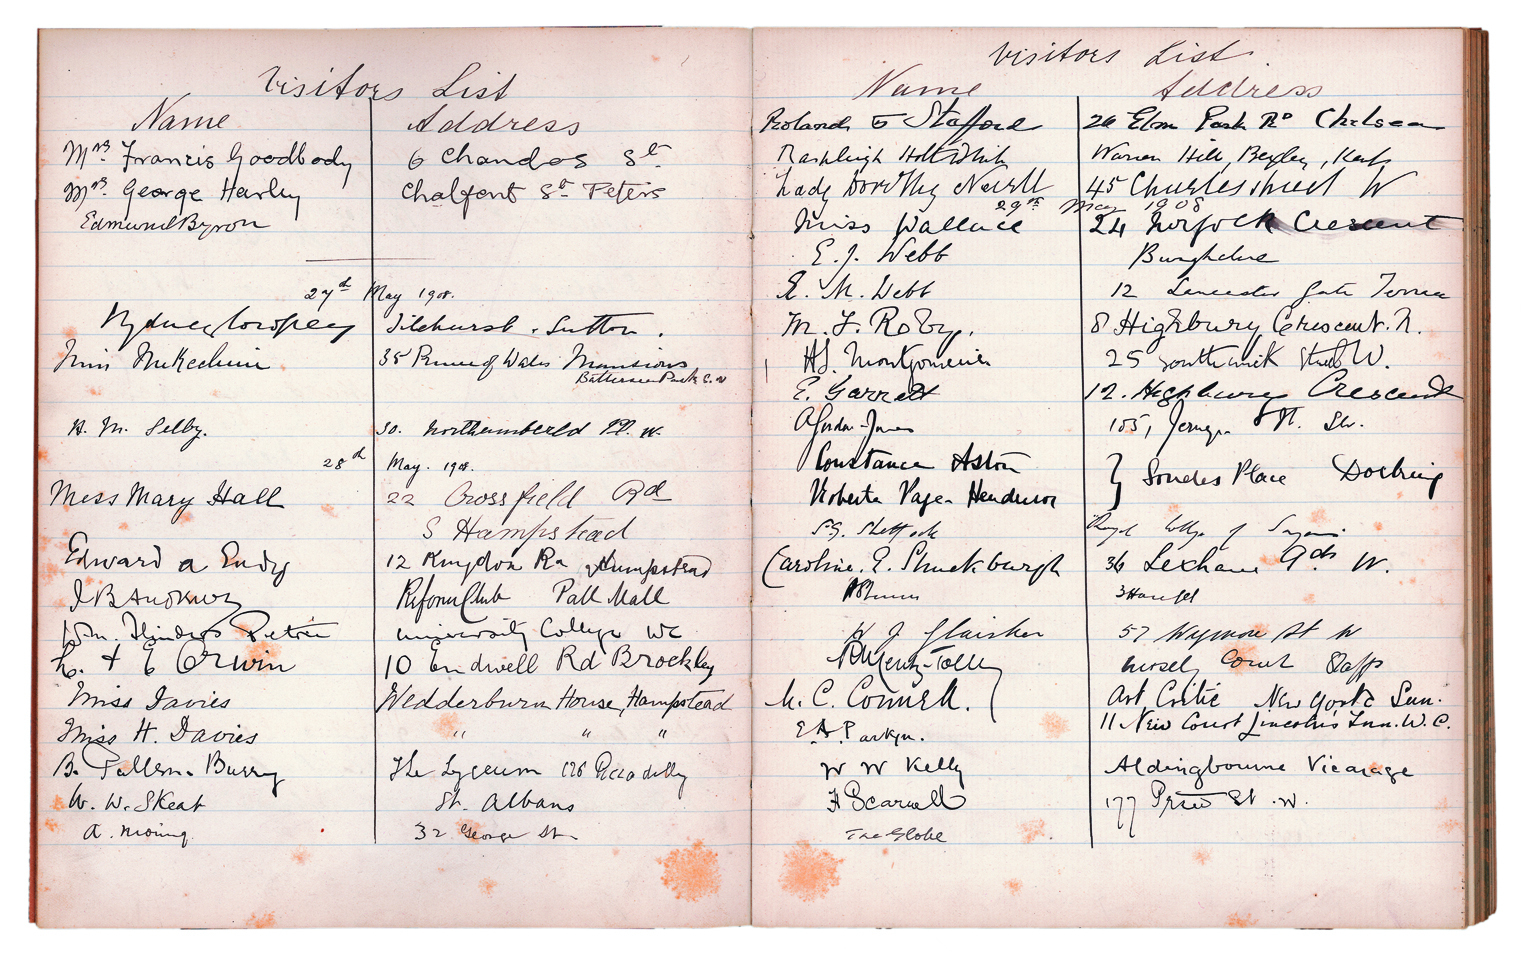 Visitors List
Name Address
Mrs. Francis Goodbody 6 Chandos St.
Mrs. George Hanley Chalfont St Peters
Edmund Byron
27th May 1908.
Sydney Tilehurst. Sutton.
Miss McKechnie 35 Prince of Wales Mansions
Battersea Park S.W
H. M. Selby. 30. Northumberld Pl. W.
28th May. 1908.
Miss Mary Hall 22 Crossfield Rd
S Hampstead
Edward a 12 Kingdon Rd Hampstead
Reform Club Pall Mall
Wm. Flinders Petrie University College WC
L. & E Corwin 10 Endwell Rd Brockley
Miss Davies Wedderburn House, Hampstead
Miss H. Davies " " "
B. Pullen-Burry The Lyceum 126 Piccadilly
W. W. Skeat St. Albans
A. 32 George St
Visitors List.
Name Address
Roland Stafford 26 Elm Park Rd Chelsea
Rashleigh Holt White Warren Hill, Bexley, Kent
Lady Dorothy Nevill 45 Charles street W
29th May 1908
Miss Wallace 24 Norfolk Crescent
E. J. Webb Burghclere
E. M. Webb 12 Lancaster Gate Terrace
M. F. Roby. 8 Highbury Crescent. N.
H.S. Montgomerie 25 Southwick Street W.
E. Garrett 12. Highbury Crescent
A Gordon-Jones 105, Jermyn St. SW.
Constance Aston } Sondes Place Dorking
Roberta Page Henderson
S.G. Shattock Royal College of Surgeons
Caroline. E. Shuckburgh 36 Lexham Gds W.
J. Glaisher 57 Wymore St W
Court Staffs
M. C. Art Critic New York Sun.
E.A. Parkyn. 11 New Court Lincoln's Inn. W.C.
W W Kelly Aldingbourne Vicarage
F Scarnell 177 St. W.
The Globe